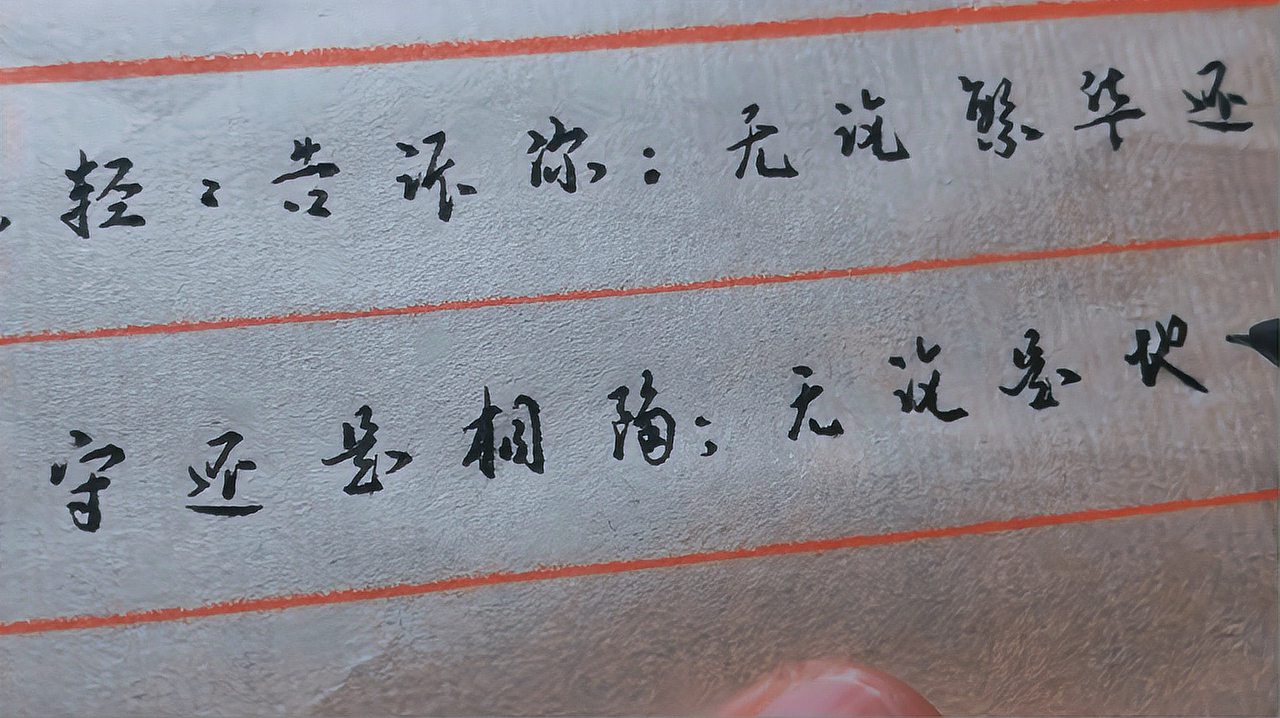 轻々告诉你：无论繁华还
守还是相隔；无论是地